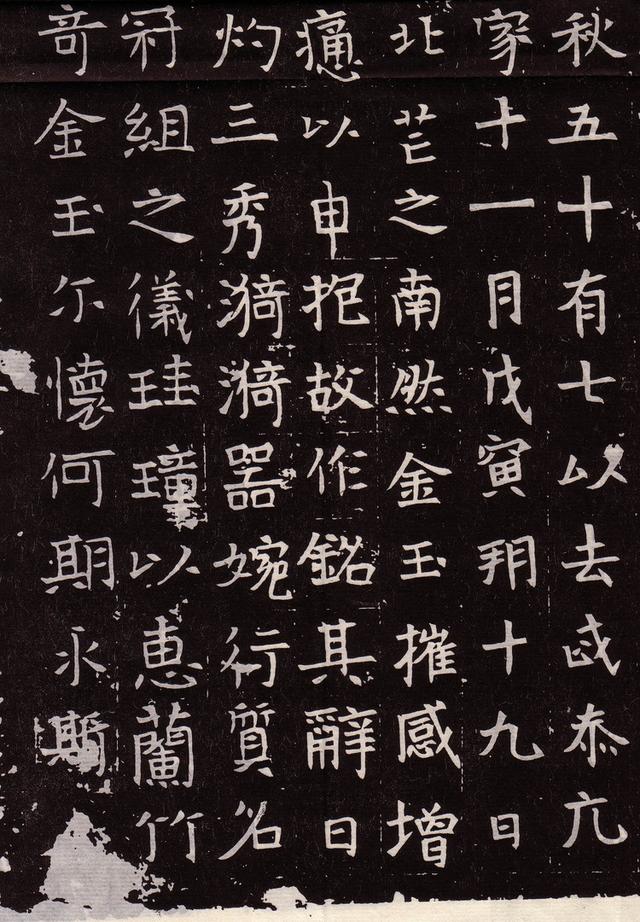 秋五十有七以去歲忝六
家十一月戊寅朔十九日
北芒之南然金玉摧感增
慟以申抱故作銘其辭曰
灼三秀漪漪器婉行質名
冠組之儀珪璋以惠蘭竹
奇金玉尒懷何期永斯